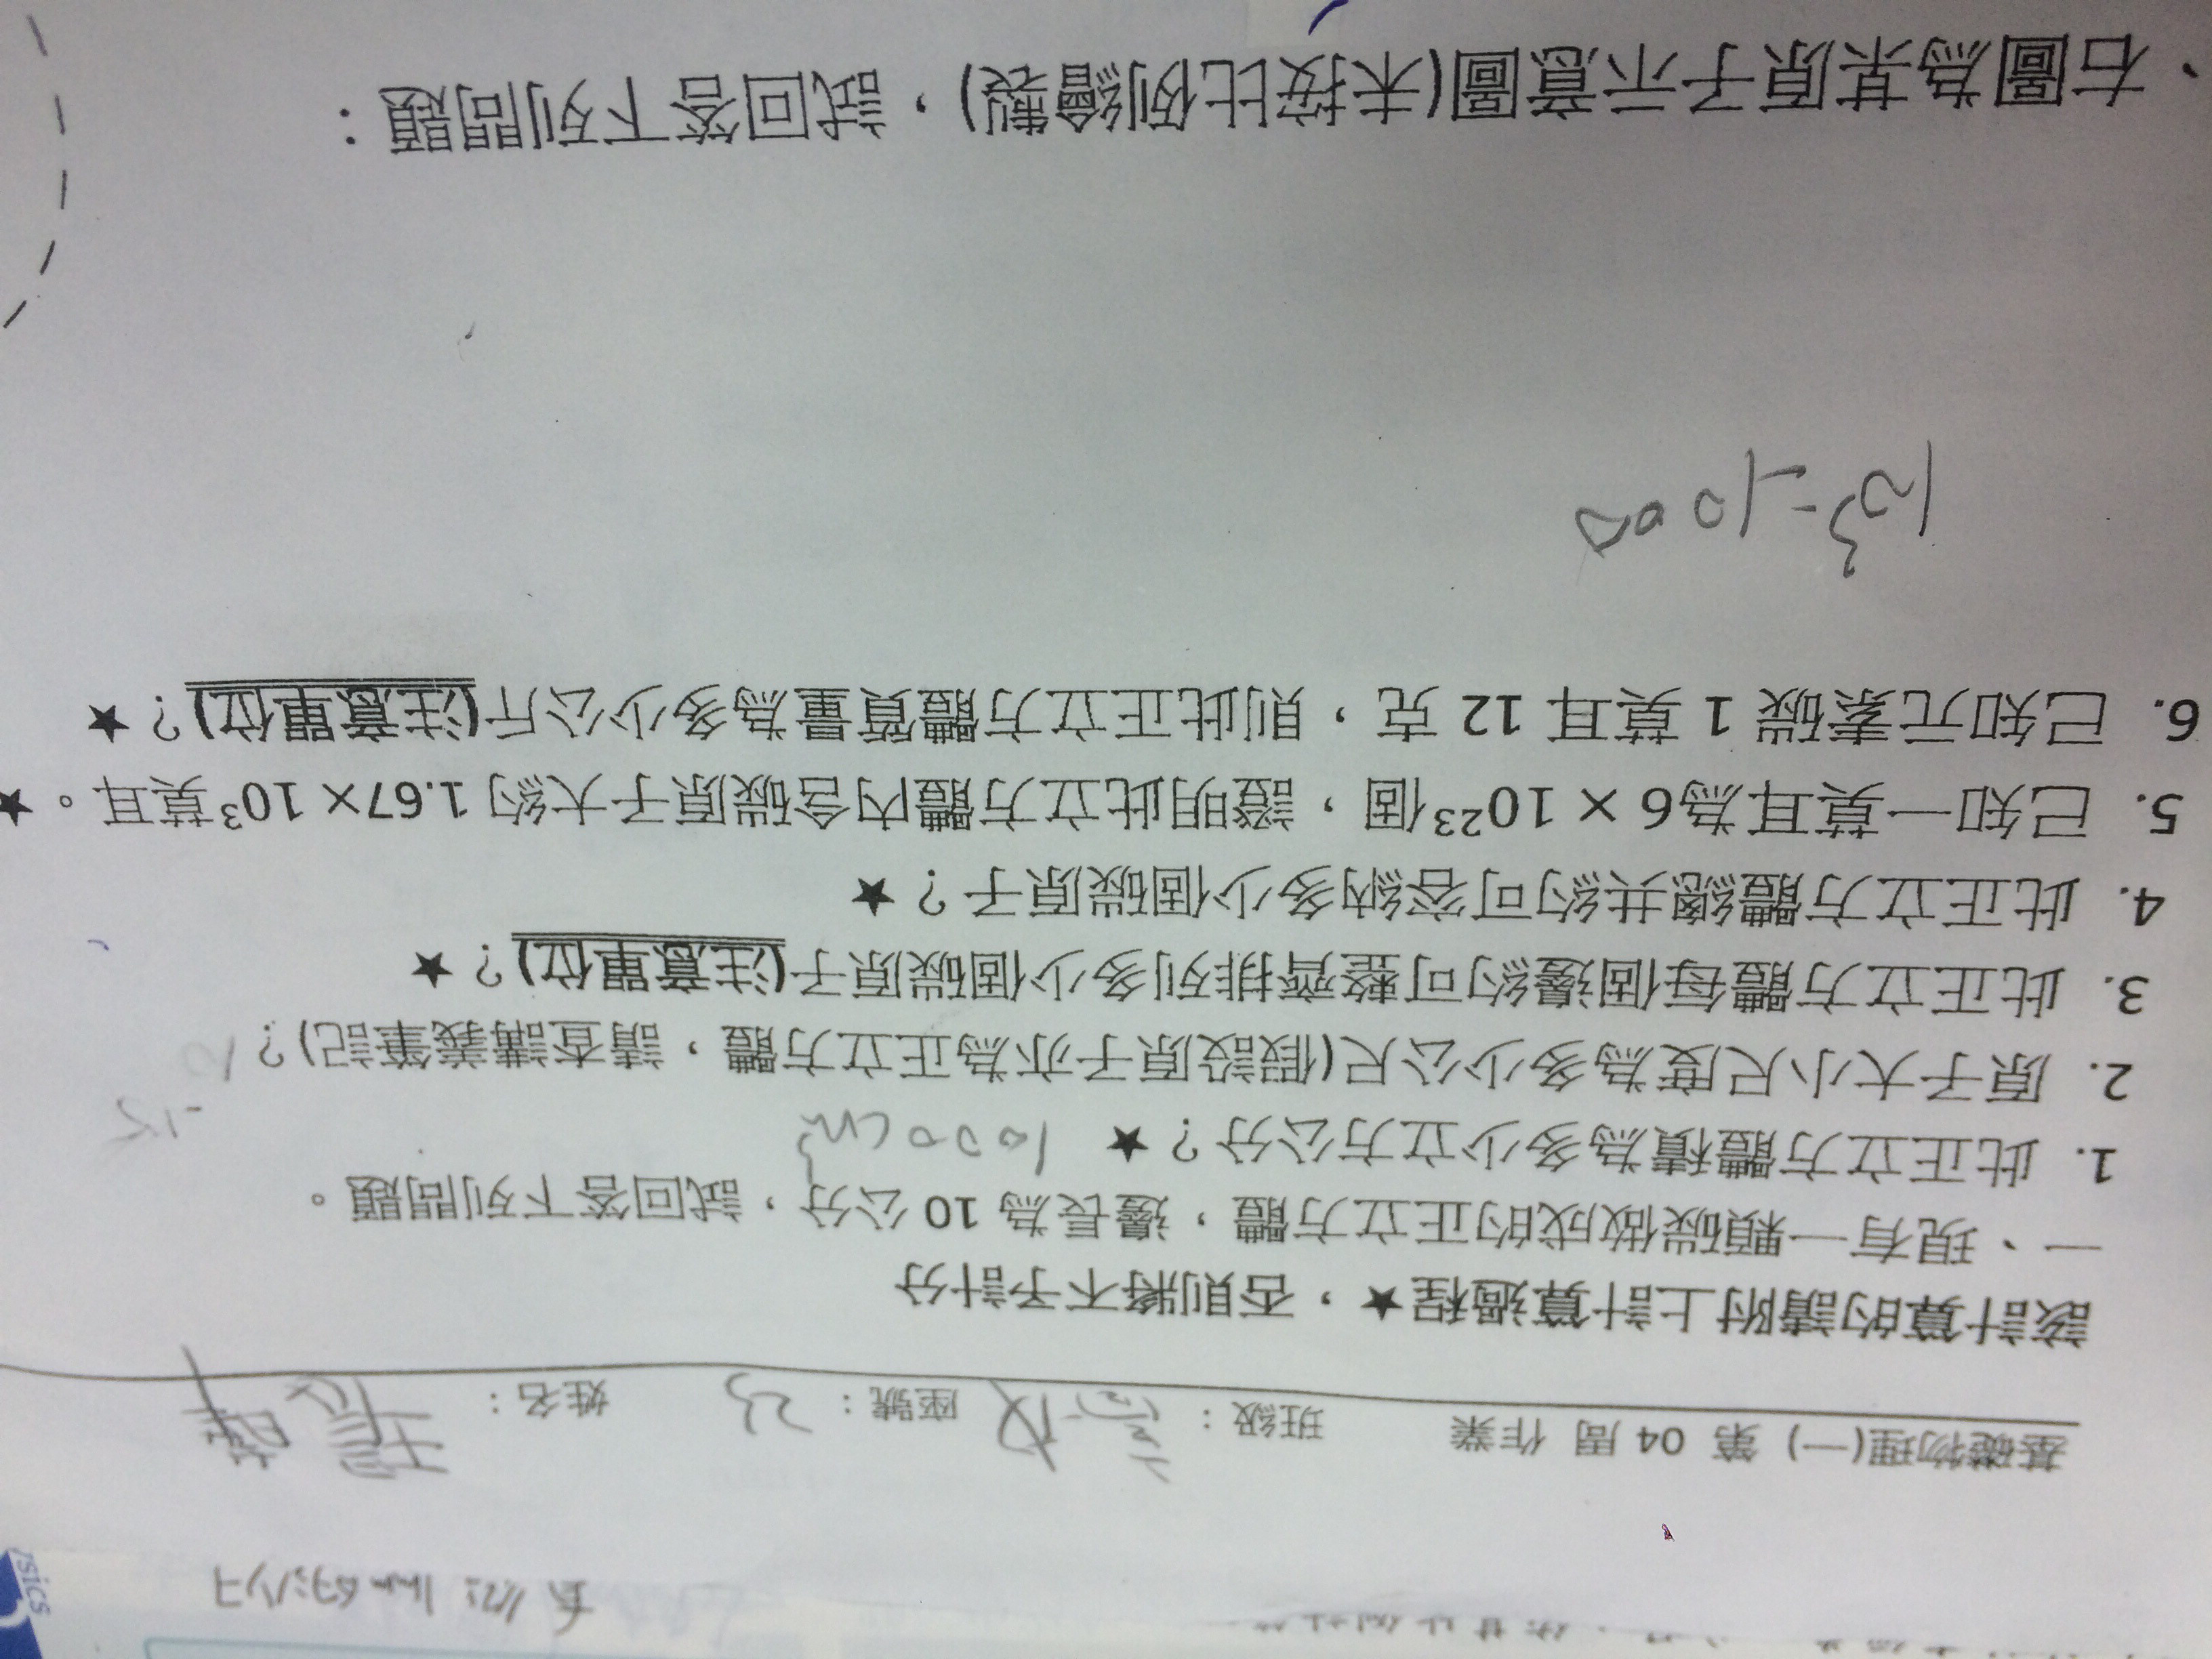 基礎物理(一) 第 04 周 作業 班級： 座號：23 姓名：
該計算的請附上計算過程★，否則將不予計分
一、現有一顆碳做成的正立方體，邊長為 10 公分，試回答下列問題。
1. 此正立方體積為多少立方公分？★ 1000cm³
2. 原子大小尺度為多少公尺(假設原子亦為正立方體，請查講義筆記)？
3. 此正立方體每個邊約可整齊排列多少個碳原子(注意單位)？★
4. 此正立方體總共約可容納多少個碳原子？★
5. 已知一莫耳為6 × 10²³個，證明此立方體內含碳原子大約 1.67× 10³莫耳。★
6. 已知元素碳 1 莫耳 12 克，則此正立方體質量為多少公斤(注意單位)？★
10³=1000
、右圖為某原子示意圖(未按比例繪製)，試回答下列問題：